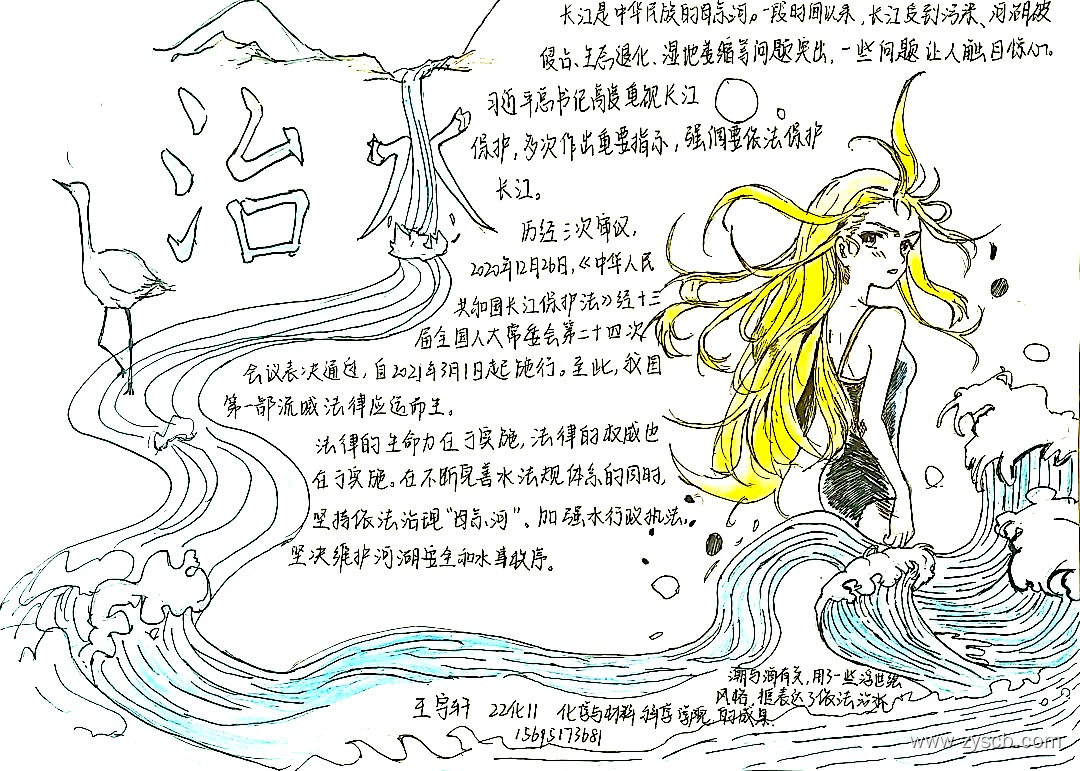 治水
长江是中华民族的母亲河。一段时间以来，长江受到污染、河湖被
侵占、生态退化、湿地萎缩等问题突出，一些问题让人触目惊心。
习近平总书记高度重视长江
保护，多次作出重要指示，强调要依法保护
长江。
历经三次审议，
2020年12月26日，《中华人民
共和国长江保护法》经十三
届全国人大常委会第二十四次
会议表决通过，自2021年3月1日起施行。至此，我国
第一部流域法律应运而生。
法律的生命力在于实施，法律的权威也
在于实施。在不断完善水法规体系的同时，
坚持依法治理“母亲河”、加强水行政执法，
坚决维护河湖安全和水事秩序。
潮与海有关，用了一些浮世绘
风格，想表达了依法治水
的成果
王宇轩 22化11 化学与材料科学学院
15695173681
www.zyscb.com